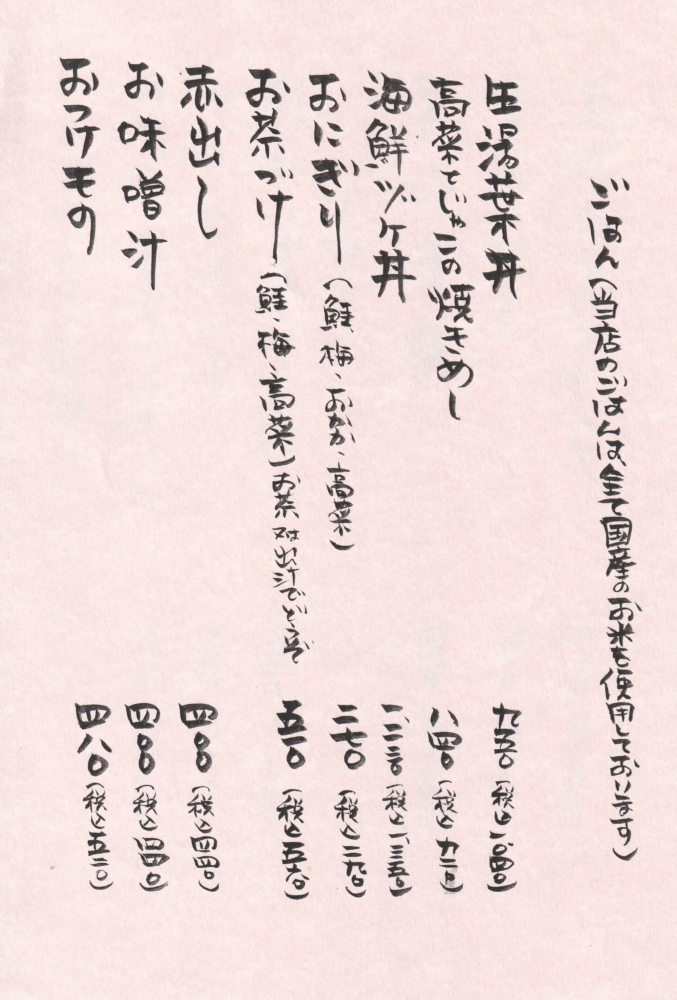 ごはん(当店のごはんは、全て国産のお米を使用しております)
生湯葉丼 九五〇(税込一、〇四〇)
高菜とじゃこの焼きめし 八四〇(税込九二〇)
海鮮ヅケ丼 一、二三〇(税込一、三五〇)
おにぎり(鮭、梅、おかか、高菜) 二七〇(税込二九〇)
お茶づけ(鮭、梅、高菜)お茶又は出汁でどうぞ 五一〇(税込五六〇)
赤出し 四〇〇(税込四四〇)
お味噌汁 四〇〇(税込四四〇)
おつけもの 四八〇(税込五二〇)